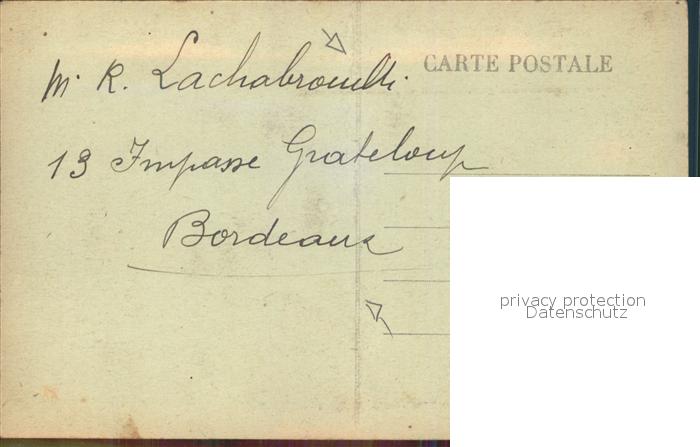 CARTE POSTALE
M. R.
13 Impasse Grateloup
Bordeaux
privacy protection
Datenschutz